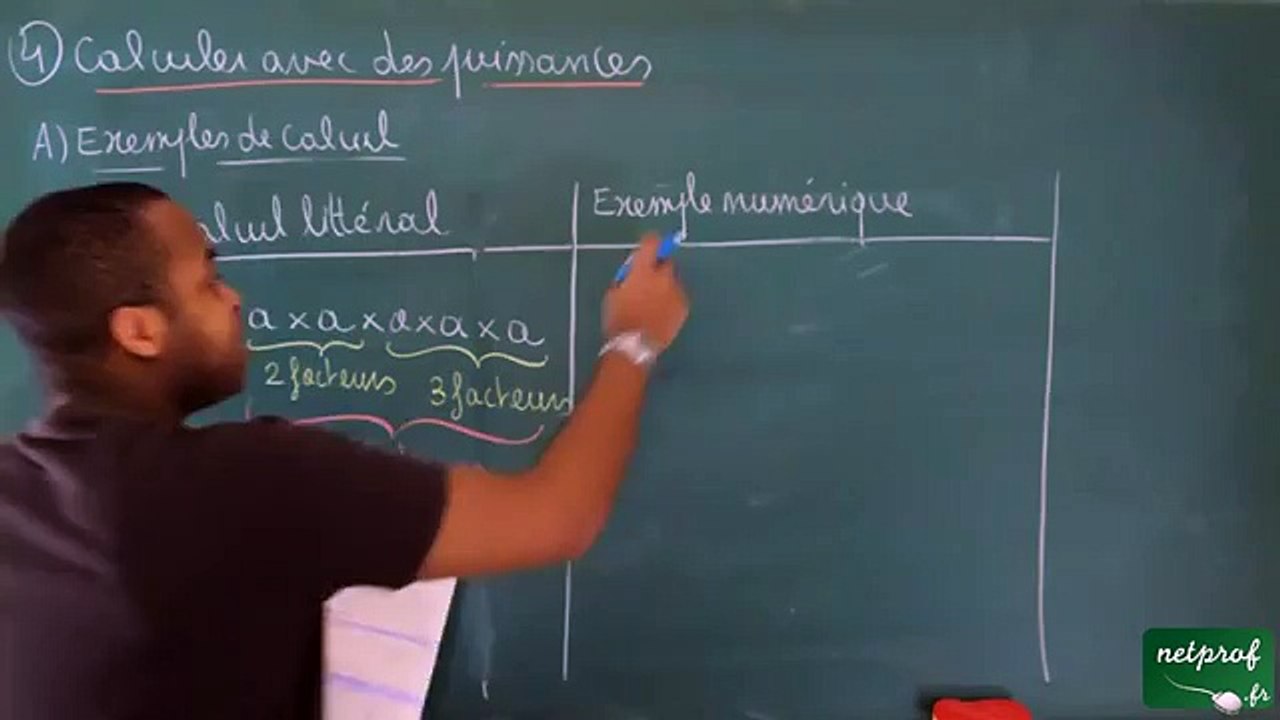 4 Calculer avec des puissances
A) Exemples de calcul
alcul littéral
Exemple numérique
a × a × a × a × a
2 facteurs 3 facteurs
netprof
.fr